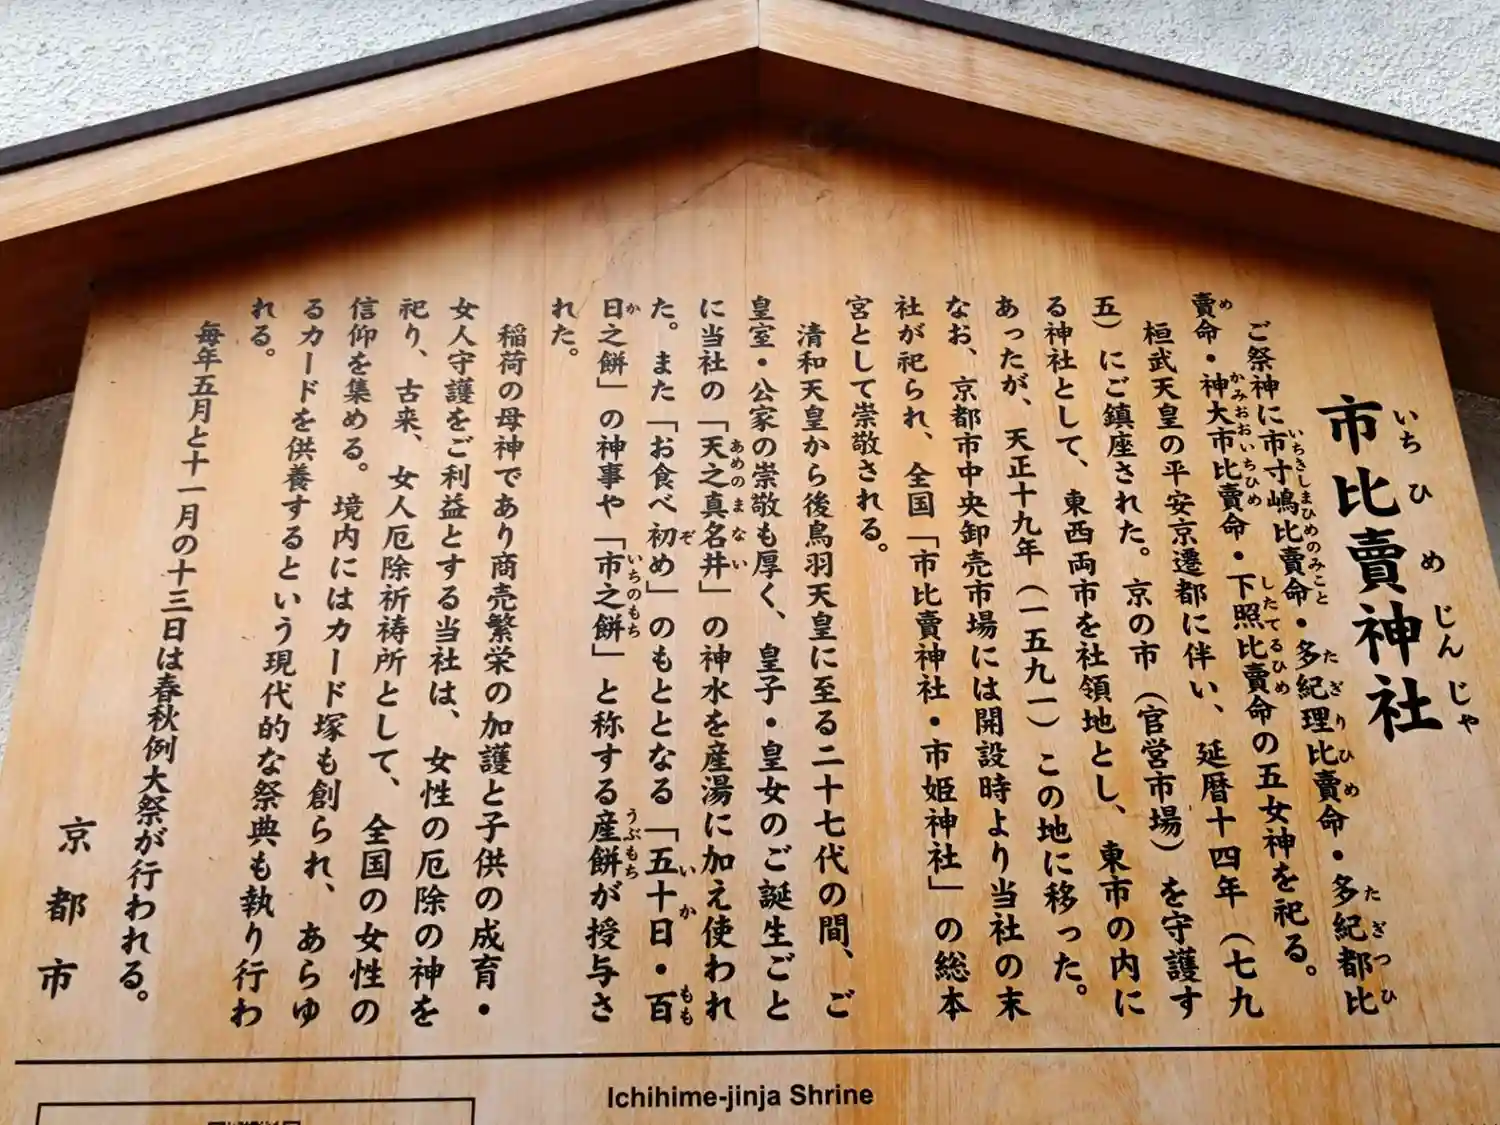 市比賣神社
いちひめじんじゃ
ご祭神に市寸嶋比賣命・多紀理比賣命・多紀都比
いちきしまひめのみこと たぎりひめ たぎつひ
賣命・神大市比賣命・下照比賣命の五女神を祀る。
め かみおおいちひめ したてるひめ
桓武天皇の平安京遷都に伴い、延暦十四年（七九
五）にご鎮座された。京の市（官営市場）を守護す
る神社として、東西両市を社領地とし、東市の内に
あったが、天正十九年（一五九一）この地に移った。
なお、京都市中央卸売市場には開設時より当社の末
社が祀られ、全国「市比賣神社・市姫神社」の総本
宮として崇敬される。
清和天皇から後鳥羽天皇に至る二十七代の間、ご
皇室・公家の崇敬も厚く、皇子・皇女のご誕生ごと
に当社の「天之真名井」の神水を産湯に加え使われ
あめのまない
た。また「お食べ初め」のもととなる「五十日・百
ぞ いか もも
日之餅」の神事や「市之餅」と称する産餅が授与さ
か いちのもち うぶもち
れた。
稲荷の母神であり商売繁栄の加護と子供の成育・
女人守護をご利益とする当社は、女性の厄除の神を
祀り、古来、女人厄除祈祷所として、全国の女性の
信仰を集める。境内にはカード塚も創られ、あらゆ
るカードを供養するという現代的な祭典も執り行わ
れる。
毎年五月と十一月の十三日は春秋例大祭が行われる。
京都市
Ichihime-jinja Shrine